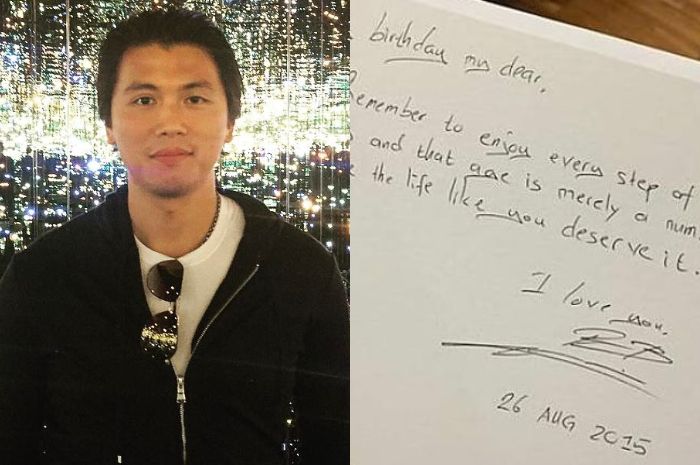 birthday my dear,
Remember to enjoy every step of
and that age is merely a num
the life like you deserve it.
I love you.
26 AUG 2015